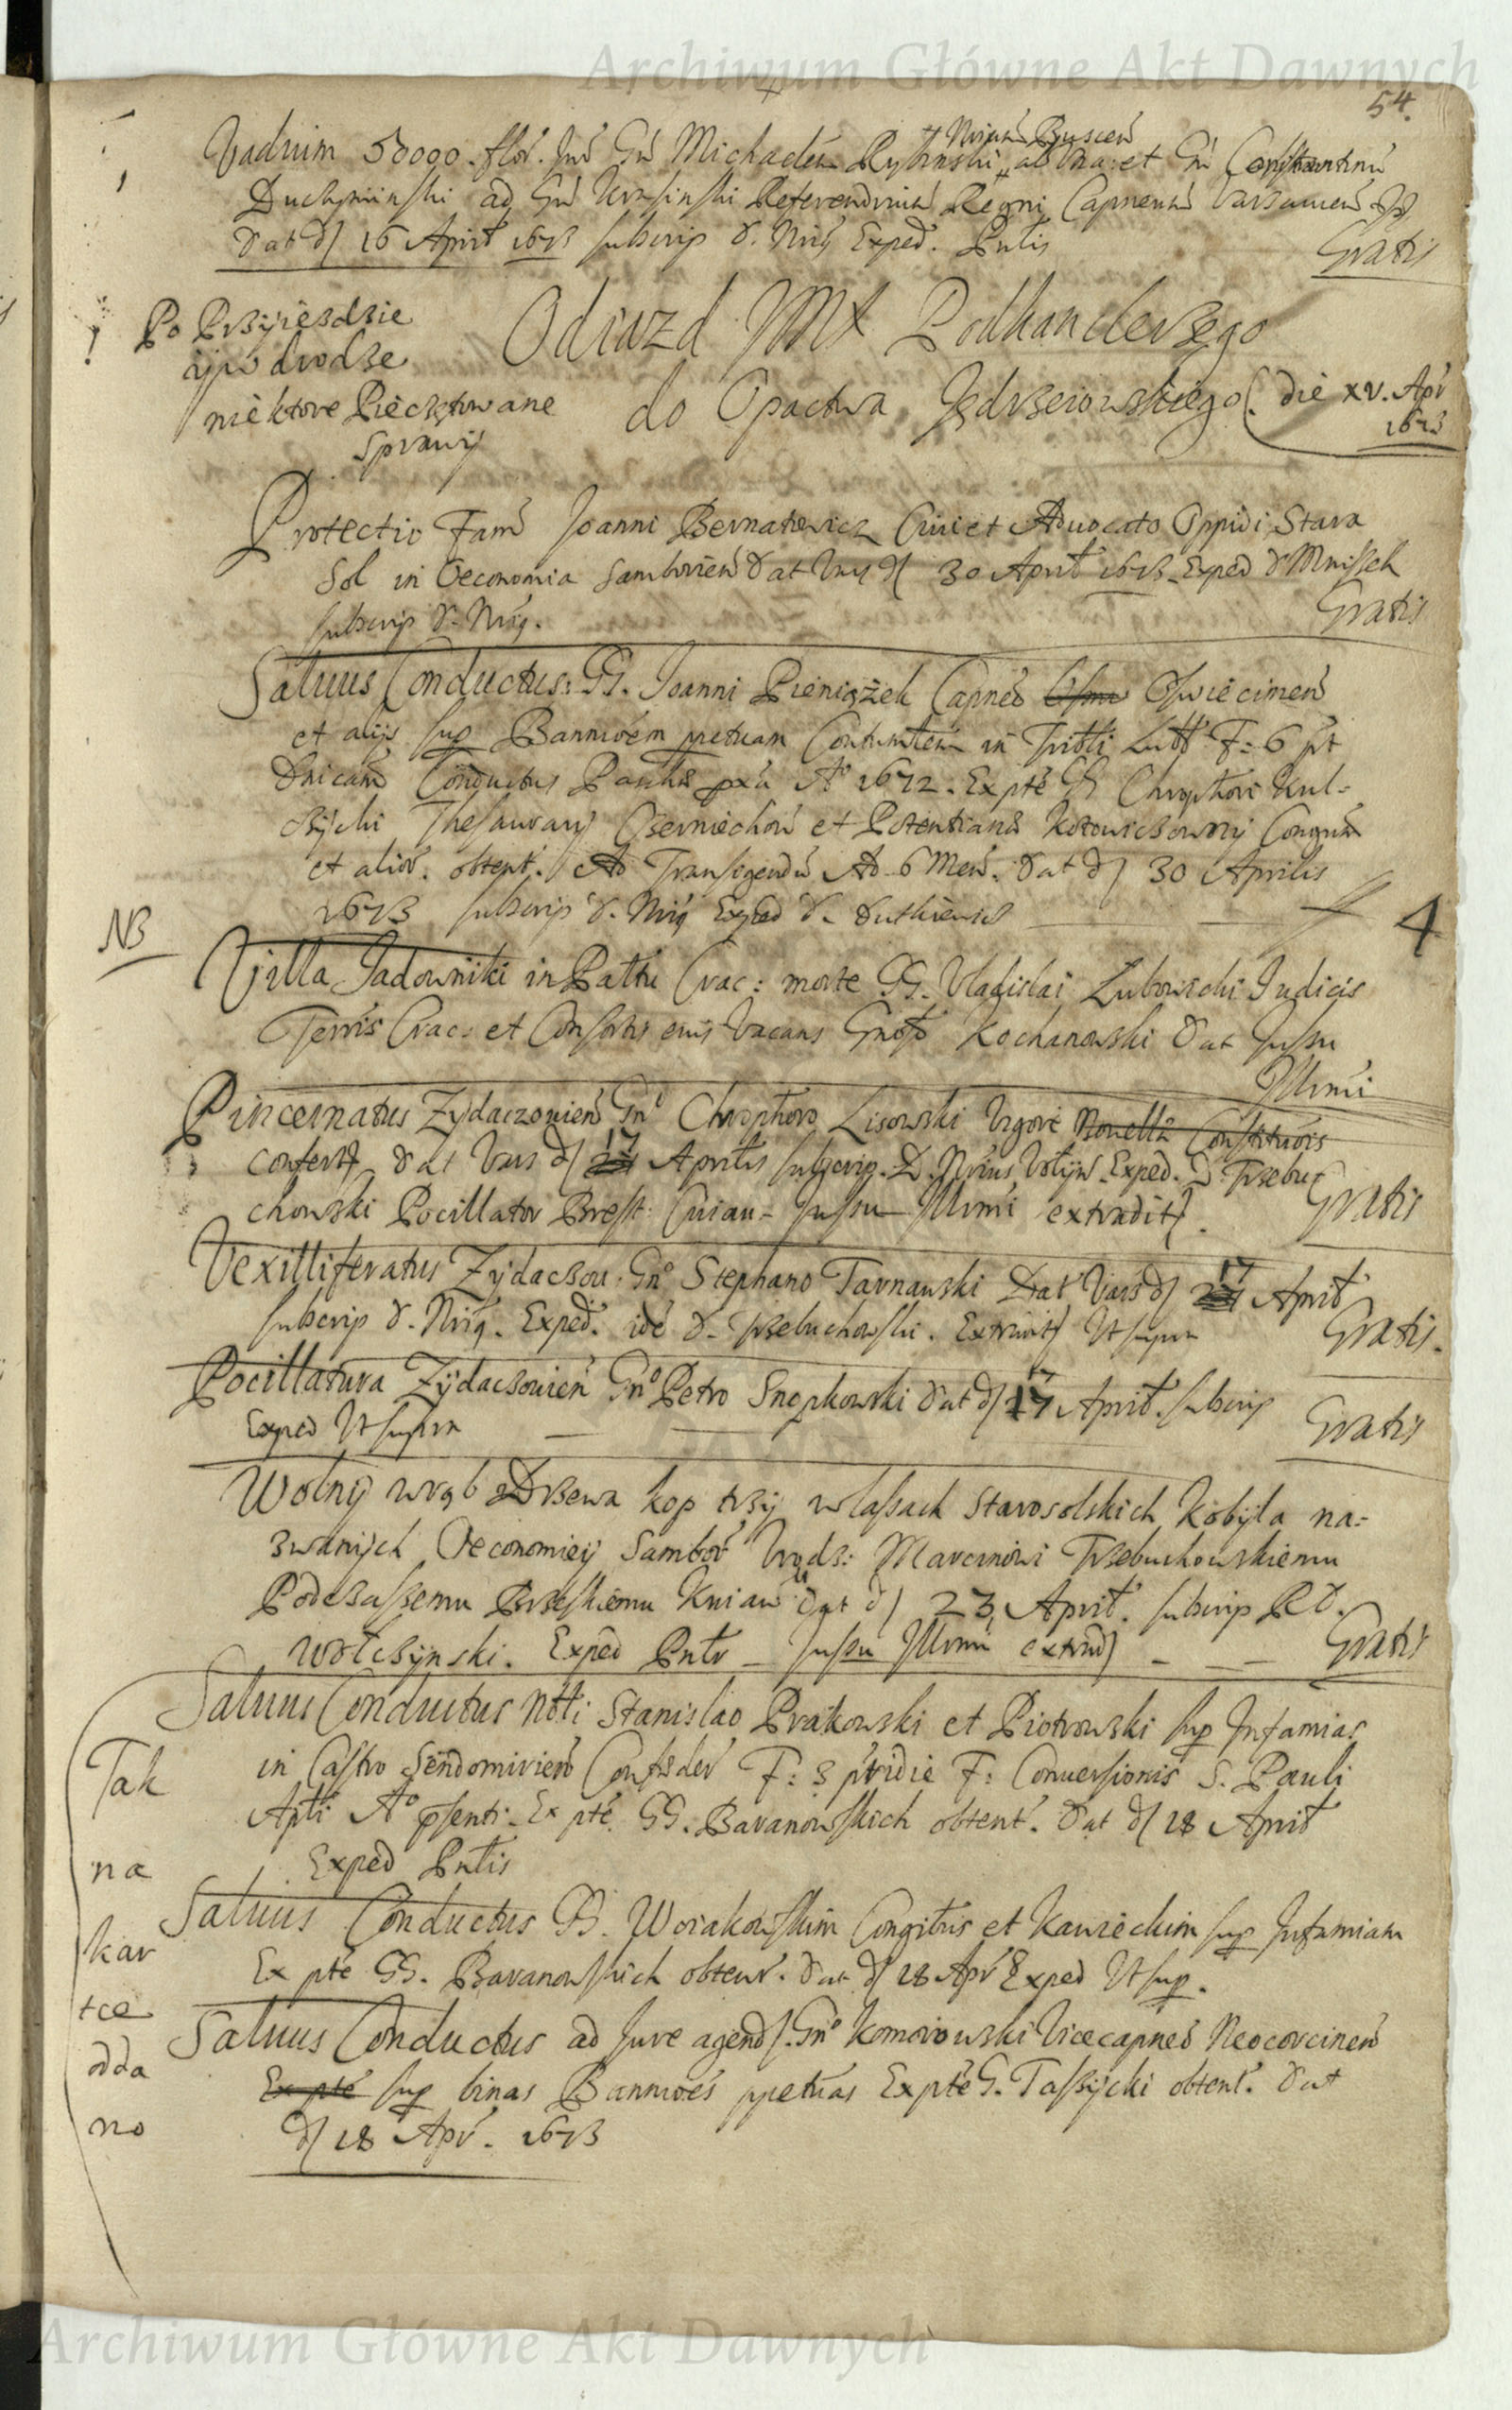 Archiwum Główne Akt Dawnych
54.
Vadium 50000. flor. Inter Gn Michaelem Rybinski ab Vna et Gn Constantinu
ad Gn Krasinski Referendariu Regni Capneum Varsauien
Dat d 16 April 1673 subscrip d. Nrig Exped. Pntis Gratis
Po Przyiezdzie
ÿpo drodze
niektore Pieczętowane
Sprawÿ
Odiazd JMX Podkanclerzego
do Opactwa Jędrzeiowskiego die xv. Apr
1673
Protectio Fam Joanni Bernatowicz Ciui et Aduocato Oppidi Stara
Sol in Oeconomia Samborien Dat Vars d 30 April 1673 Exped d Mnissek
subscrip d. Nrig. Gratis
Saluus Conductus GG. Joanni Pieniążek Capneo Oswiecimen
et alijs sup Bannioem ppetuam Contumlem in Tribli Lubl F: 6 pt
Dnicam Conductus Paschae pxa Ao 1672. Ex pte GG Chrophori Kul-
czÿcki Thesaurarij Czerniechow et Potentiana Kotowiczowny Coniugum
et alior. obtent. Ad Transigendu Ad 6 Men. Dat d 30 Aprilis
1673 subscrip d. Nrig Exped d. Dutkiewicz
4
NB
Villa Jadowniki in Pallu Crac: morte GG. Vladislai Lubowicki Judicis
Terris Crac: et Consortis eius Vacans Gnoso Kochanowski Dat Jussu
Illrmi
Pincernatus Zÿdaczowien Gno Chrophoro Lisowski Vigore Nouella Constitutiois
confert dat Vars d 17 Aprilis subscrip. D. Nrius Volÿn Exped. D. Trzebu-
chowski Pocillator Brest: Cuiau- Jussu Illrmi extradit. Gratis
Vexilliferatus Zÿdaczou: Gno Stephano Tarnawski Dat Vars d 17 April
subscrip d. Nrig. Exped. ide d. Trzebuchowski. Extradit Vt supra Gratis.
Pocillatura Zÿdaczouien Gno Petro Snopkowski dat d 17 April. subscrip
Exped Vt supra Gratis
Wolnÿ wrąb Drzewa kop trzÿ w lasach Starosolskich Kobÿla na=
zwanÿch Oeconomieÿ Sambor Urodz: Marcinowi Trzebuchowskiemu
Podczaszemu Brzeskiemu Kuiaw Dat d 23 April. subscrip R D.
Wołczÿnski. Exped Pntr Jussu Illrmi extrad Gratis
Saluus Conductus Nbli Stanislao Prakowski et Piotrowski sup Infamias
in Castro Sendomirien F: 3 pridie F: Conuersionis S. Pauli
Apli Ao psenti. Ex pte GG. Baranowskich obtent. Dat d 18 April
Exped Pntis
Saluus Conductus GG. Worakowskim Congibus et Kawieckim sup Infamiam
Ex pte GG. Baranowskich obtent. Dat d 18 Apr Exped Vt sup.
Saluus Conductus ad Jure agend. Gno Komorowski Vicecapneo Neocorcinen
Ex pte sup binas Bannioes ppetuas Ex pte G. Taszÿcki obtent. Dat
d 18 Apr. 1673
Tak
na
kar
tce
odda
no
Archiwum Główne Akt Dawnych